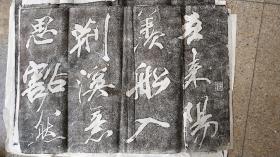 吾來陽
羨船入
荊溪意
思豁然